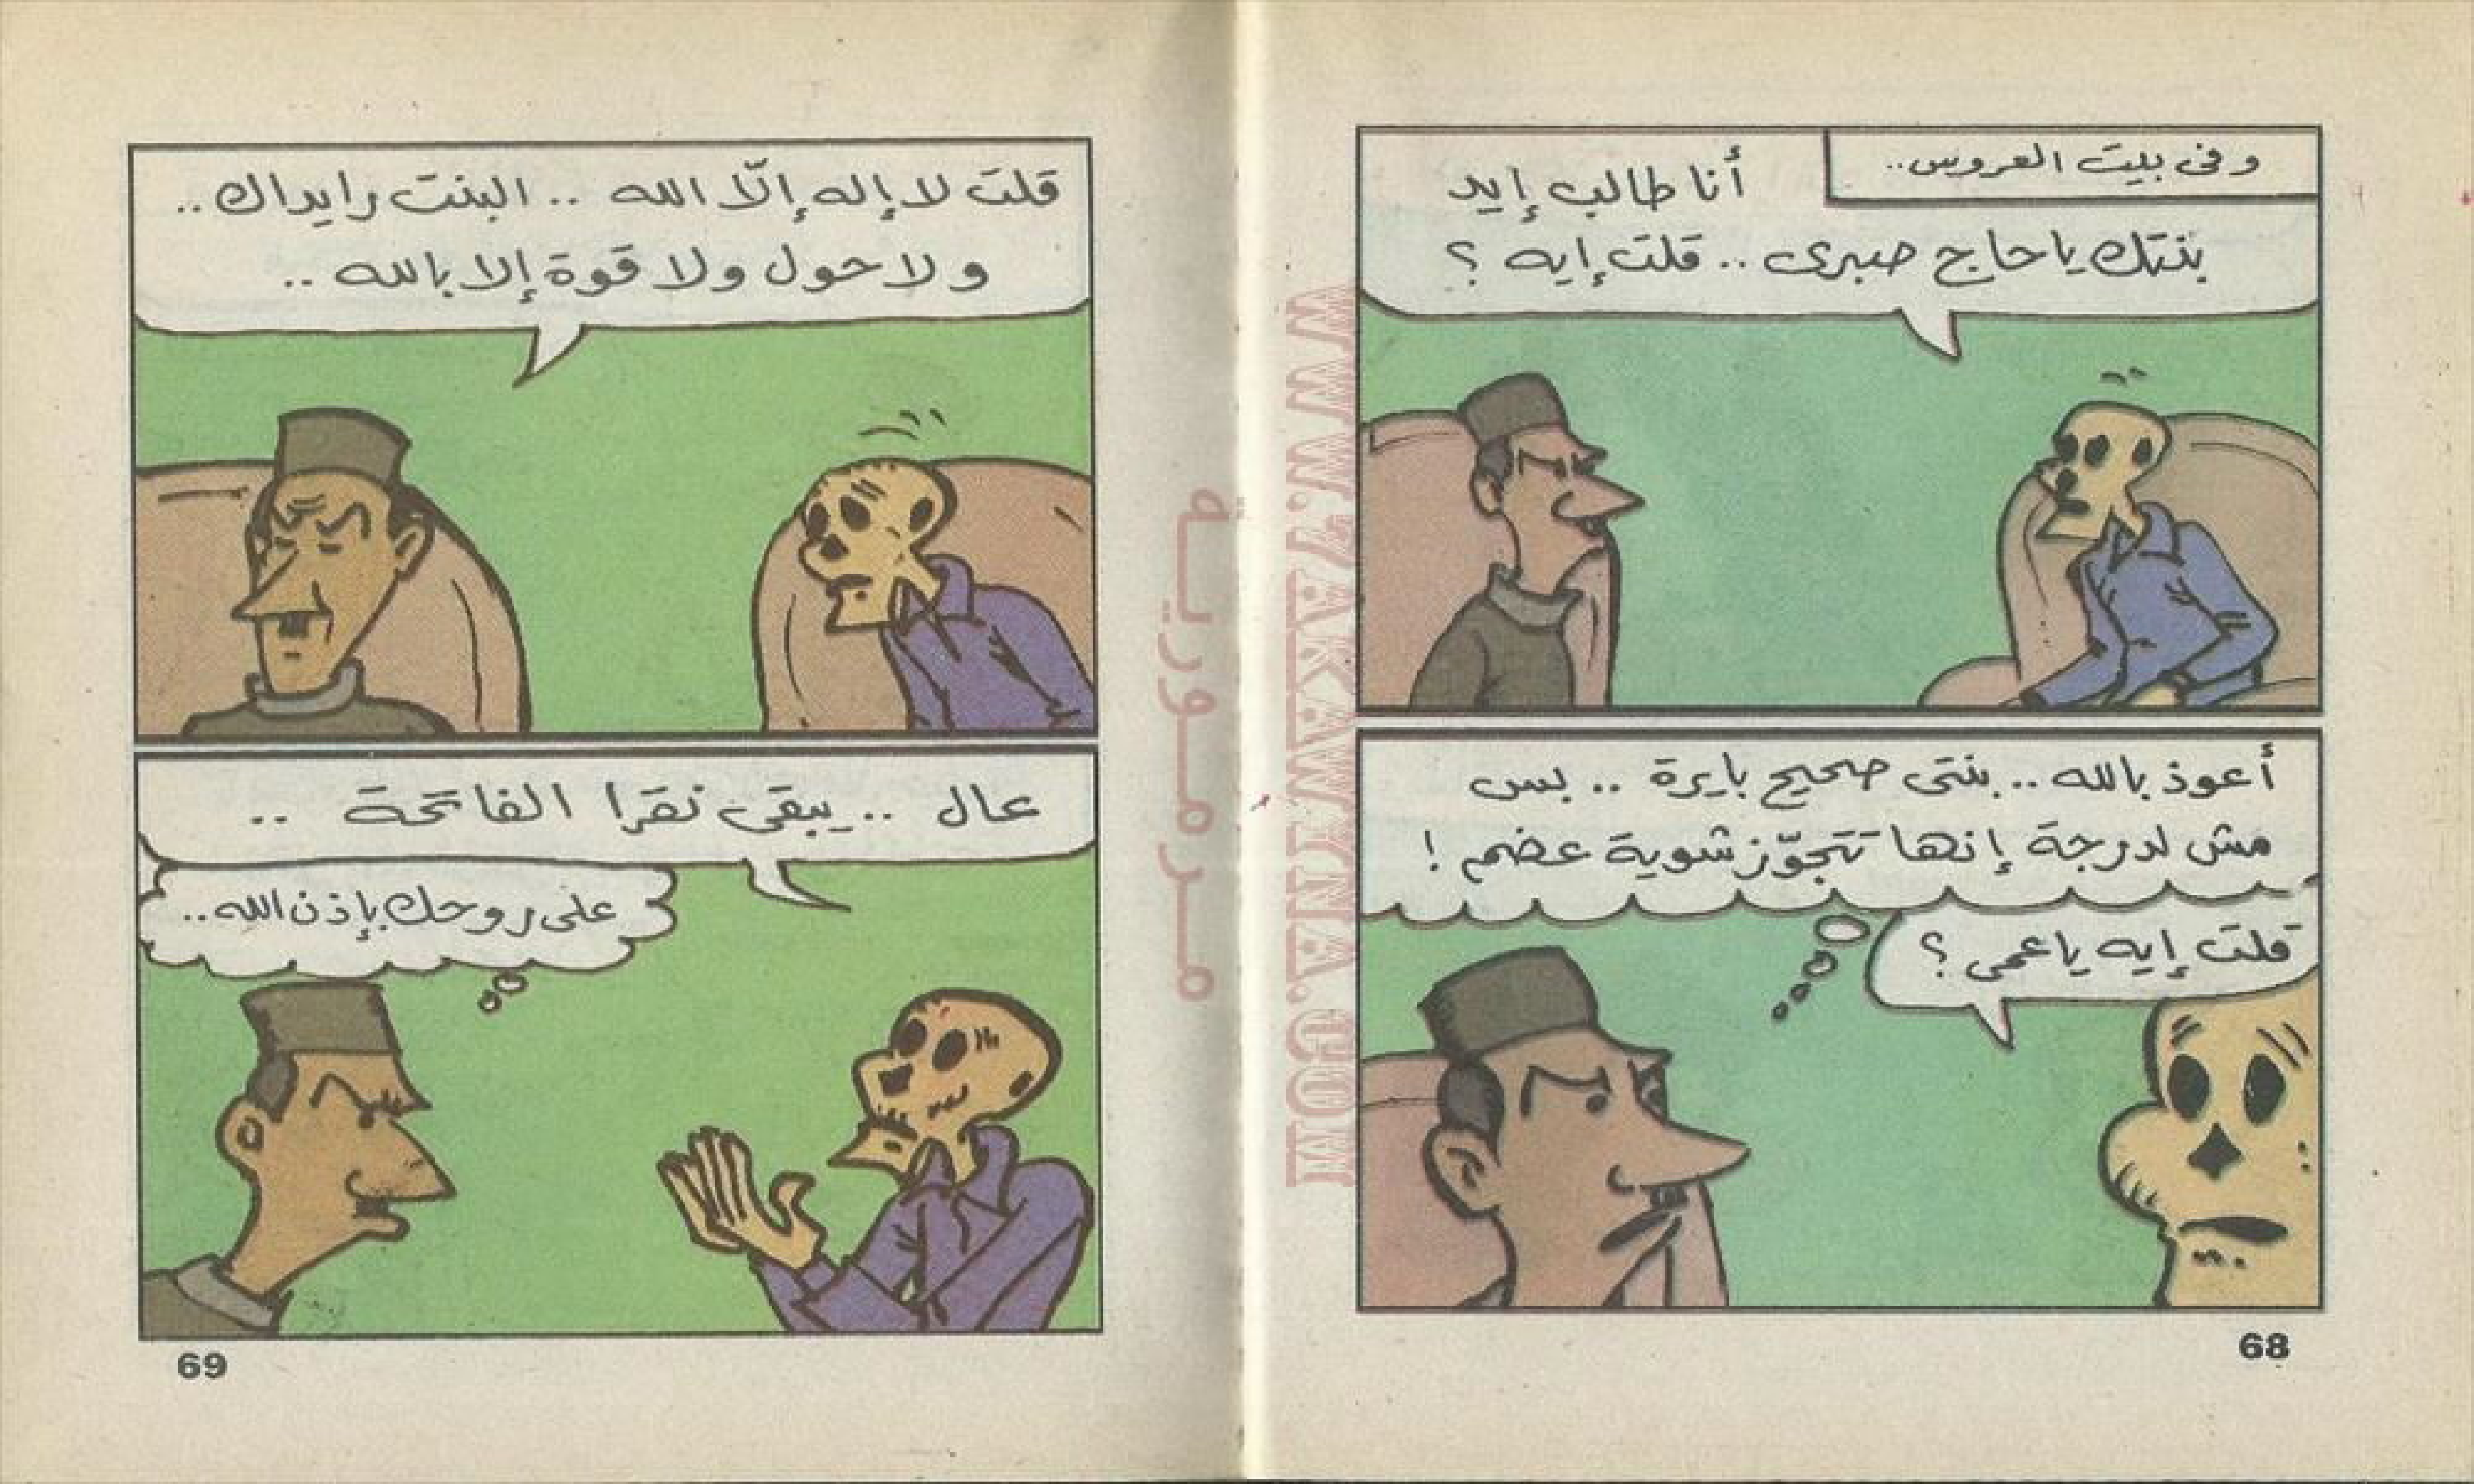 وفى بيت العروس..
أنا طالب إيد
بنتك ياحاج صبرى .. قلت إيه ؟
أعوذ بالله .. بنتى صحيح بايرة .. بس
مش لدرجة إنها تتجوّز شوية عضم !
قلت إيه ياعمى ؟
68
قلت لا إله إلّا الله .. البنت رايداك ..
ولا حول ولا قوة إلا بالله ..
عال .. يبقى نقرا الفاتحة ..
على روحك بإذن الله ..
69
مرمورية
WWW.ARAWINA.COM